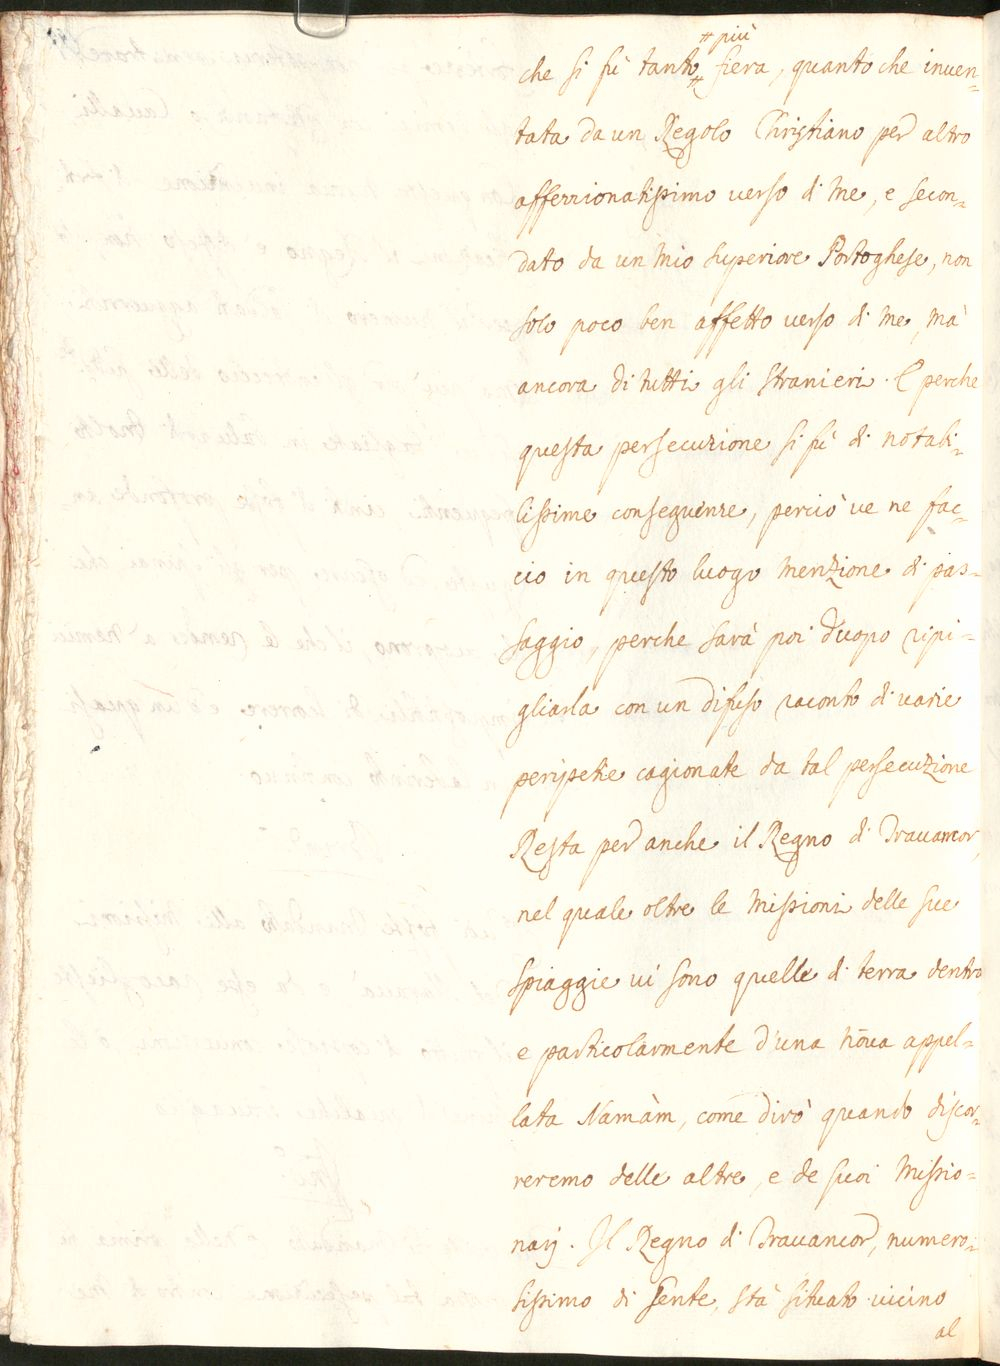 che si fù tanto # più fiera, quanto che inuen-
tata da un Regolo Christiano per altro
affezzionatissimo verso di me, e secon-
dato da un mio superiore Portoghese, non
solo poco ben affetto verso di me, mà
ancora di tutti gli stranieri. E perche
questa persecuzione si fù di notabi-
lissime conseguenze, perciò ve ne fac-
cio in questo luogo menzione di pas-
saggio, perche sarà poi d'uopo ripi-
gliarla con un difuso raconto di uarie
peripetie cagionate da tal persecuzione
Resta per anche il Regno di Trauancor,
nel quale oltre le Missioni delle sue
spiaggie ui sono quelle di terra dentro
e particolarmente d'una nōua appel-
lata Namàm, come dirò quando discor-
reremo delle altre, e de suoi Missio-
narij. Il Regno di Trauancor, numero-
sissimo di Gente, stà situato uicino
al